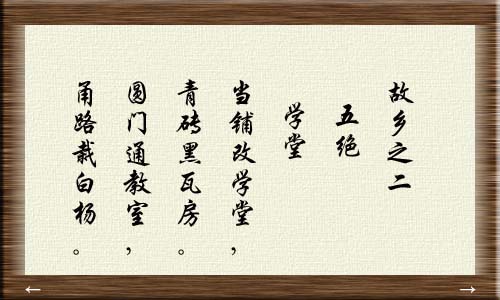 故乡之二
五绝
学堂
当铺改学堂，
青砖黑瓦房。
圆门通教室，
甬路栽白杨。
← →